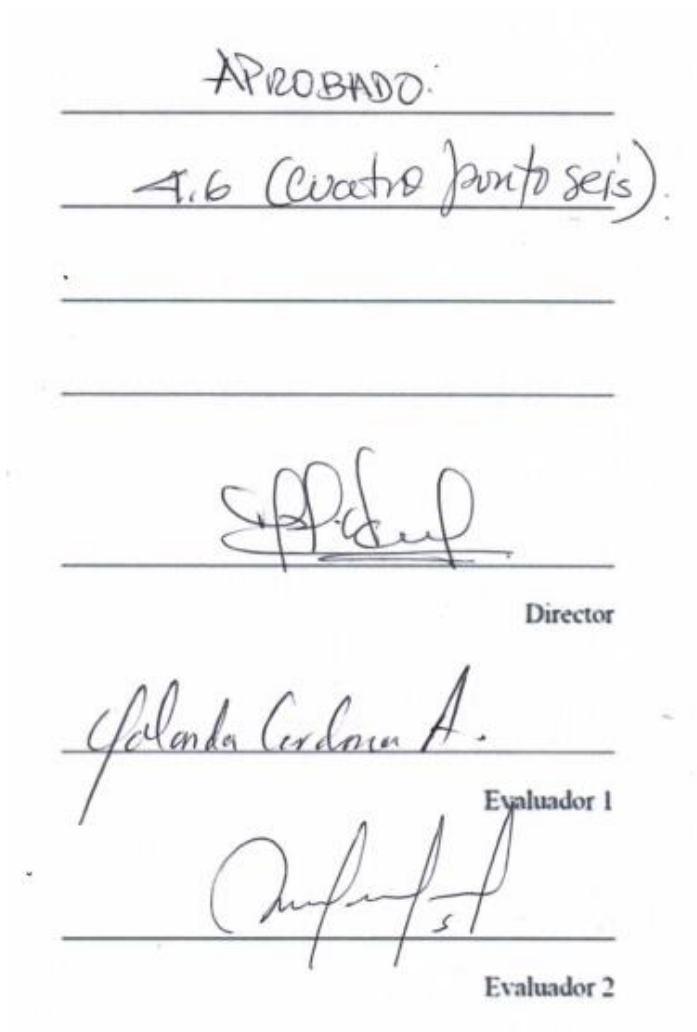 APROBADO.
4.6 (cuatro punto seis).
Director
Yolanda Cardona A.
Evaluador 1
Evaluador 2